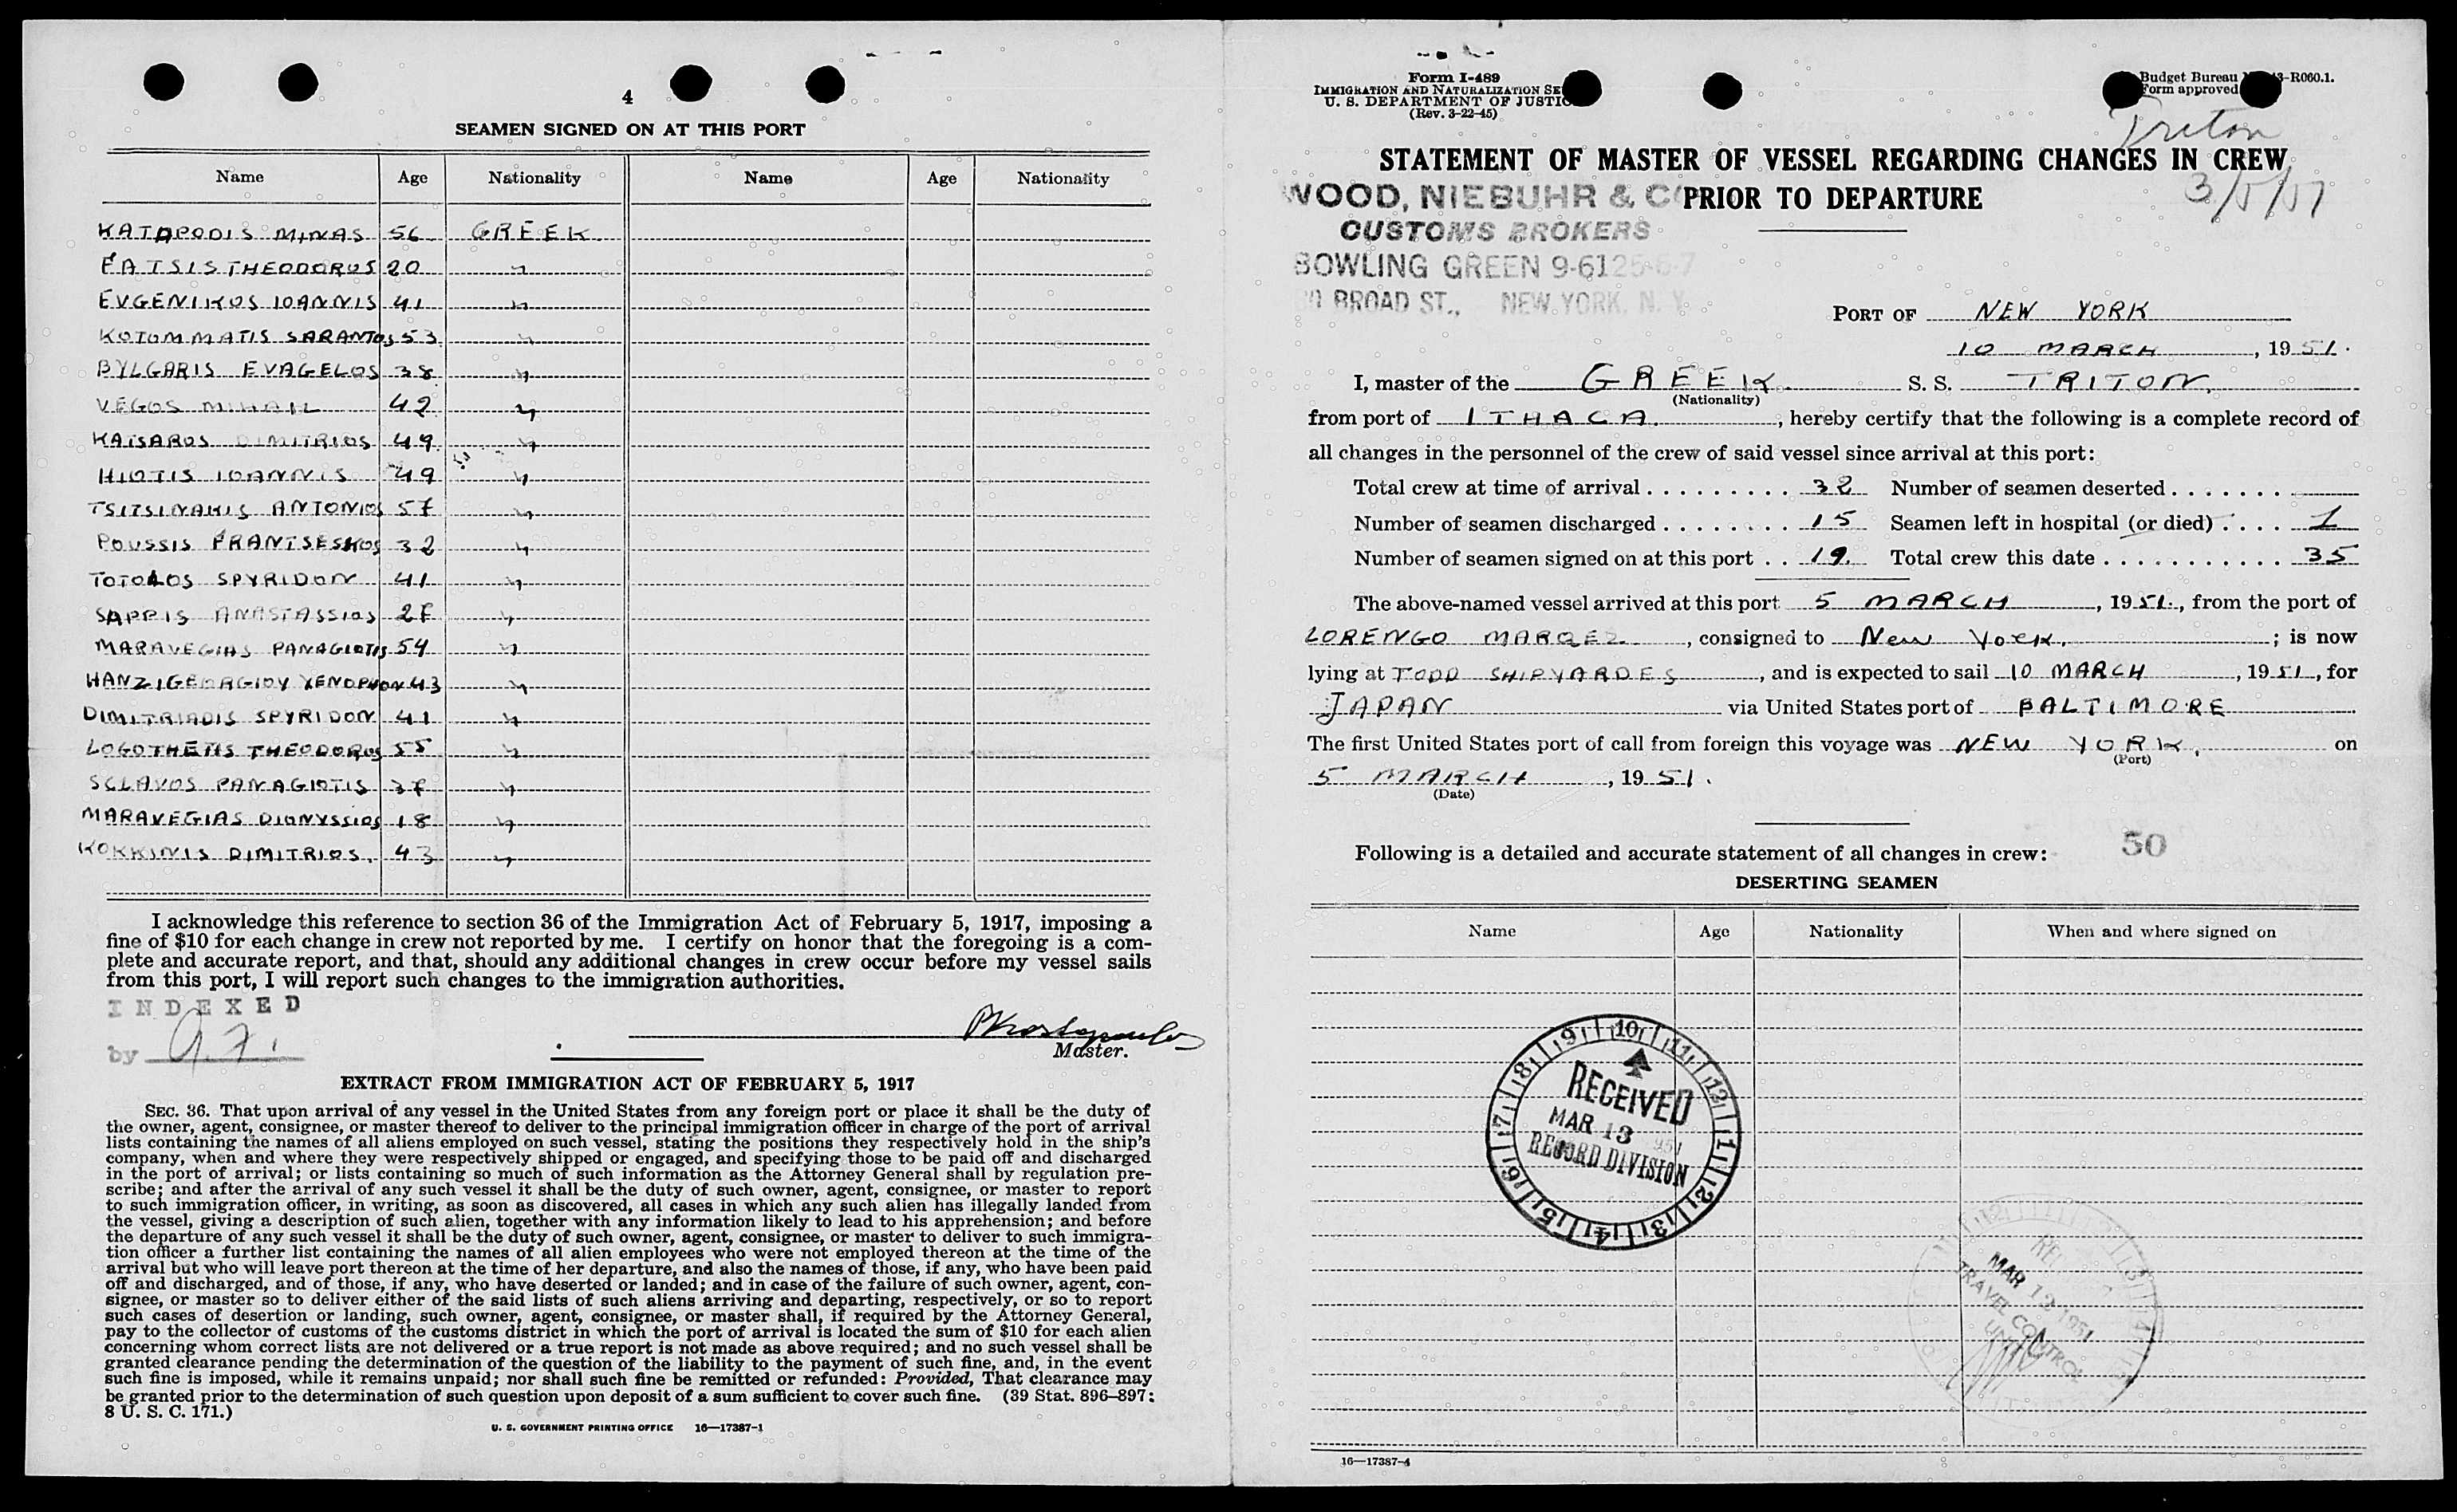 4
SEAMEN SIGNED ON AT THIS PORT
Name Age Nationality Name Age Nationality
KATAPODIS MINAS 56 GREEK
FATSIS THEODORUS 20 "
EVGENIKOS IOANNIS 41 "
KOTOMMATIS SARANTOS 53 "
BYLGARIS EVAGELOS 38 "
VEGOS MIHAIL 42 "
KAISAROS DIMITRIOS 49 "
HIOTIS IOANNIS 49 "
TSITSINAKIS ANTONIOS 57 "
POUSSIS FRANTSESKOS 32 "
TOTOLOS SPYRIDON 41 "
SAPPIS ANASTASSIOS 27 "
MARAVEGIAS PANAGIOTIS 54 "
HANZIGEORGIOY XENOPHON 43 "
DIMITRIADIS SPYRIDON 41 "
LOGOTHETIS THEODOROS 55 "
SCLAVOS PANAGIOTIS 37 "
MARAVEGIAS DIONYSSIOS 18 "
KOKKINIS DIMITRIOS. 43 "
I acknowledge this reference to section 36 of the Immigration Act of February 5, 1917, imposing a
fine of $10 for each change in crew not reported by me. I certify on honor that the foregoing is a com-
plete and accurate report, and that, should any additional changes in crew occur before my vessel sails
from this port, I will report such changes to the immigration authorities.
INDEXED
by
Master.
EXTRACT FROM IMMIGRATION ACT OF FEBRUARY 5, 1917
SEC. 36. That upon arrival of any vessel in the United States from any foreign port or place it shall be the duty of
the owner, agent, consignee, or master thereof to deliver to the principal immigration officer in charge of the port of arrival
lists containing the names of all aliens employed on such vessel, stating the positions they respectively hold in the ship's
company, when and where they were respectively shipped or engaged, and specifying those to be paid off and discharged
in the port of arrival; or lists containing so much of such information as the Attorney General shall by regulation pre-
scribe; and after the arrival of any such vessel it shall be the duty of such owner, agent, consignee, or master to report
to such immigration officer, in writing, as soon as discovered, all cases in which any such alien has illegally landed from
the vessel, giving a description of such alien, together with any information likely to lead to his apprehension; and before
the departure of any such vessel it shall be the duty of such owner, agent, consignee, or master to deliver to such immigra-
tion officer a further list containing the names of all alien employees who were not employed thereon at the time of the
arrival but who will leave port thereon at the time of her departure, and also the names of those, if any, who have been paid
off and discharged, and of those, if any, who have deserted or landed; and in case of the failure of such owner, agent, con-
signee, or master so to deliver either of the said lists of such aliens arriving and departing, respectively, or so to report
such cases of desertion or landing, such owner, agent, consignee, or master shall, if required by the Attorney General,
pay to the collector of customs of the customs district in which the port of arrival is located the sum of $10 for each alien
concerning whom correct lists are not delivered or a true report is not made as above required; and no such vessel shall be
granted clearance pending the determination of the question of the liability to the payment of such fine, and, in the event
such fine is imposed, while it remains unpaid; nor shall such fine be remitted or refunded: Provided, That clearance may
be granted prior to the determination of such question upon deposit of a sum sufficient to cover such fine. (39 Stat. 896–897;
8 U. S. C. 171.)
U. S. GOVERNMENT PRINTING OFFICE 16—17387-1
Form I-489
IMMIGRATION AND NATURALIZATION SE
U. S. DEPARTMENT OF JUSTIC
(Rev. 3-22-45)
Budget Bureau 3-R060.1.
Form approved
Triton
STATEMENT OF MASTER OF VESSEL REGARDING CHANGES IN CREW
PRIOR TO DEPARTURE
3/5/51
WOOD, NIEBUHR & C
CUSTOMS BROKERS
BOWLING GREEN 9-6125-6-7
BROAD ST., NEW YORK, N. Y.
PORT OF NEW YORK
10 MARCH, 1951.
I, master of the GREEK S. S. TRITON,
(Nationality)
from port of ITHACA., hereby certify that the following is a complete record of
all changes in the personnel of the crew of said vessel since arrival at this port:
Total crew at time of arrival . . . . . . . . . 32 Number of seamen deserted . . . . . . .
Number of seamen discharged . . . . . . . . 15 Seamen left in hospital (or died) . . . . 1
Number of seamen signed on at this port . . 19. Total crew this date . . . . . . . . . . . 35
The above-named vessel arrived at this port 5 MARCH, 1951., from the port of
LORENGO MARQEZ, consigned to New York.; is now
lying at TODD SHIPYARDES, and is expected to sail 10 MARCH, 1951, for
JAPAN via United States port of BALTIMORE
The first United States port of call from foreign this voyage was NEW YORK, on
(Port)
5 MARCH, 1951.
(Date)
Following is a detailed and accurate statement of all changes in crew: 50
DESERTING SEAMEN
Name Age Nationality When and where signed on
9 10 11 12 1 2 3 4 5 6 7 8
RECEIVED
MAR 13 951
RECORD DIVISION
MAR 12 1951
TRAVEL CONTROL
UNIT
16—17387-4